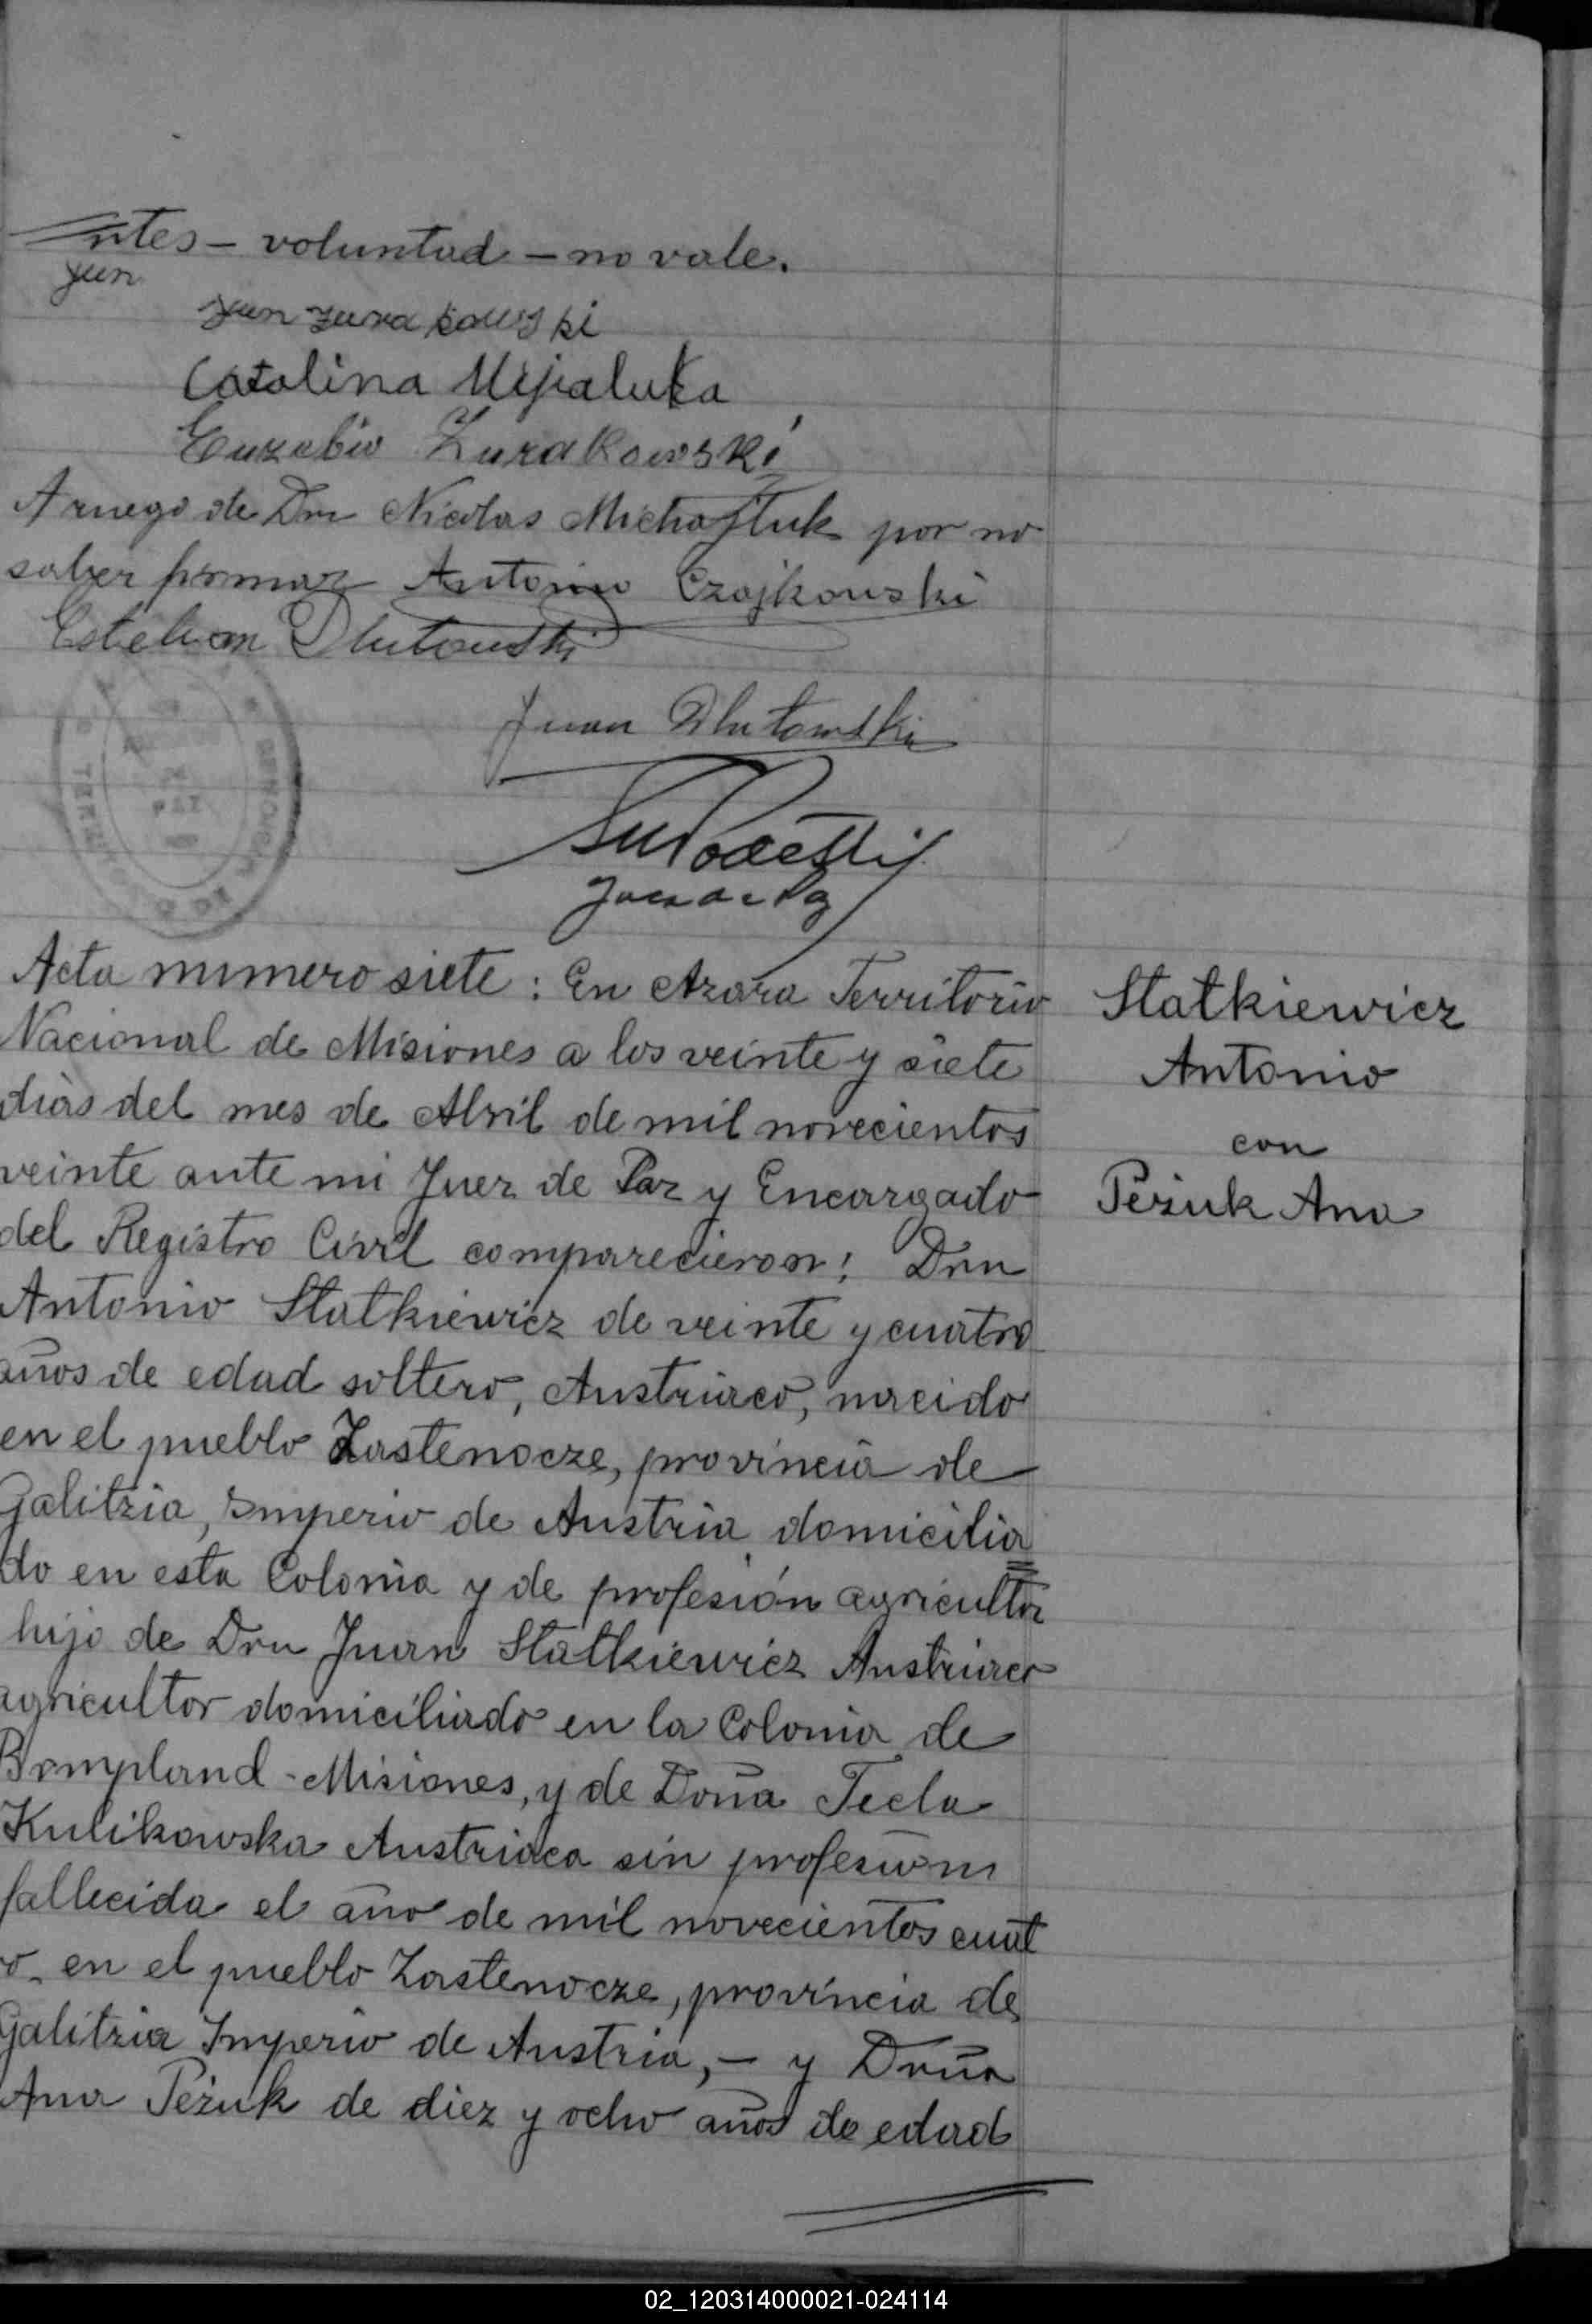 ntes - voluntad - no vale.
Jun
Jun Zurakowski
Catalina Mijaluka
Euzebio Zurakowski
A ruego de Dn Nicolas Michajluk por no
saber firmar Antonio Czajkowski
Esteban Dlutowski
Juan Dlutowski
Juez de Paz
Acta numero siete : En Azara Territorio
Nacional de Misiones a los veinte y siete
dias del mes de Abril de mil novecientos
veinte ante mi Juez de Paz y Encargado
del Registro Civil comparecieron: Don
Antonio Statkiewicz de veinte y cuatro
años de edad soltero, Austriaco, nacido
en el pueblo Zastenocze, provincia de
Galitzia, Imperio de Austria domicilia
do en esta Colonia y de profesión agricultor
hijo de Don Juan Statkiewicz Austriaco
agricultor domiciliado en la Colonia de
Bompland - Misiones, y de Doña Tecla
Kulikowska Austriaca sin profesion
fallecida el año de mil novecientos cuat
ro en el pueblo Zastenocze, provincia de
Galitzia Imperio de Austria, - y Doña
Ana Peżuk de diez y ocho años de edad
Statkiewicz
Antonio
con
Peżuk Ana
02_120314000021-024114